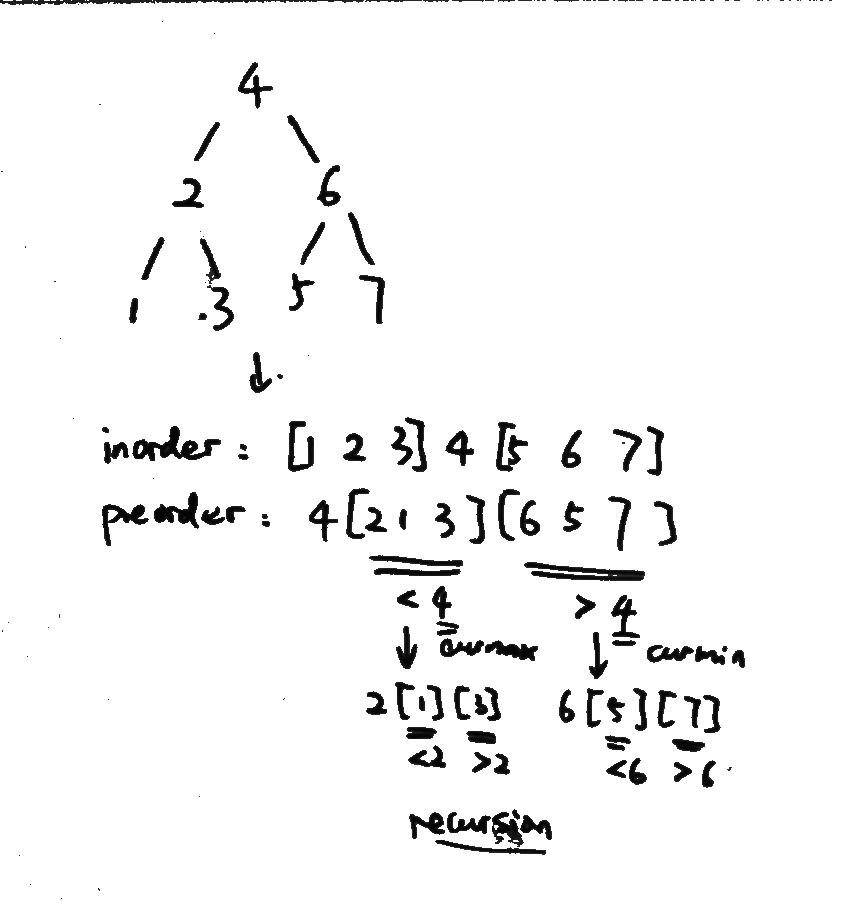 4
2 6
1 3 5 7
inorder: [1 2 3] 4 [5 6 7]
preorder: 4 [2 1 3] [6 5 7]
< 4 > 4
curmax curmin
2 [1] [3] 6 [5] [7]
<2 >2 <6 >6
recursion